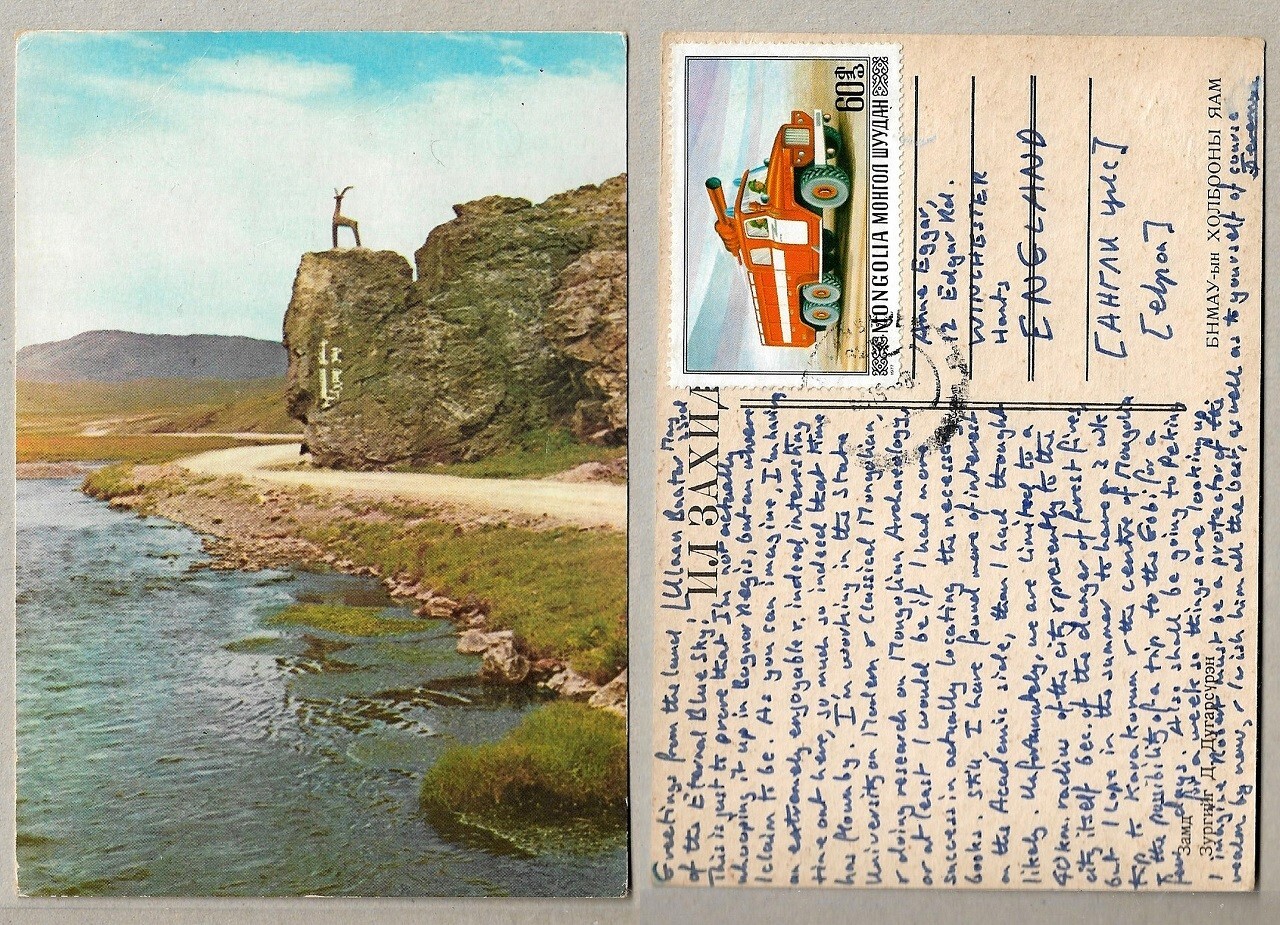 60
MONGOLIA МОНГОЛ ШУУДАН
1977
Anne Eggar,
12 Edgar Rd.
WINCHESTER
Hants
[ENGLAND
[АНГЛИ улс]
[европ]
БНМАУ-ын ХОЛБРОНЫ ЯАМ
ИЛ ЗАХИД
Замд
Зургийг Д. Дугарсүрэн
Greetings from the land Ulaan Baatar
of the Eternal Blue Sky!
This is just to prove that I'm not actually
whooping it up in Bognor Regis, but am where
I claim to be. As you can imagine, I'm having
an extremely enjoyable & indeed interesting
time out here, so much so indeed that time
has flown by. I'm working in the State
University on Modern & Classical Mongolian
& doing research on Mongolian Archaeology,
or at least I would be if I had more
success in actually locating the necessary
books. Still, I have found more of interest
on the Academic side, than I had thought
likely. Unfortunately, we are limited to a
40 km. radius of the city & presently to the
city itself bec. of the danger of forest fires,
but I hope in the summer to have a 3 wk
trip to Karakorum & the centre of Mongolia
& the possibility of a trip to the Gobi for a
few days. Also shall be going to Peking
for a week so things are looking up.
I imagine must be a protector of the
by now, & wish him all the best, as well as to yourself of course